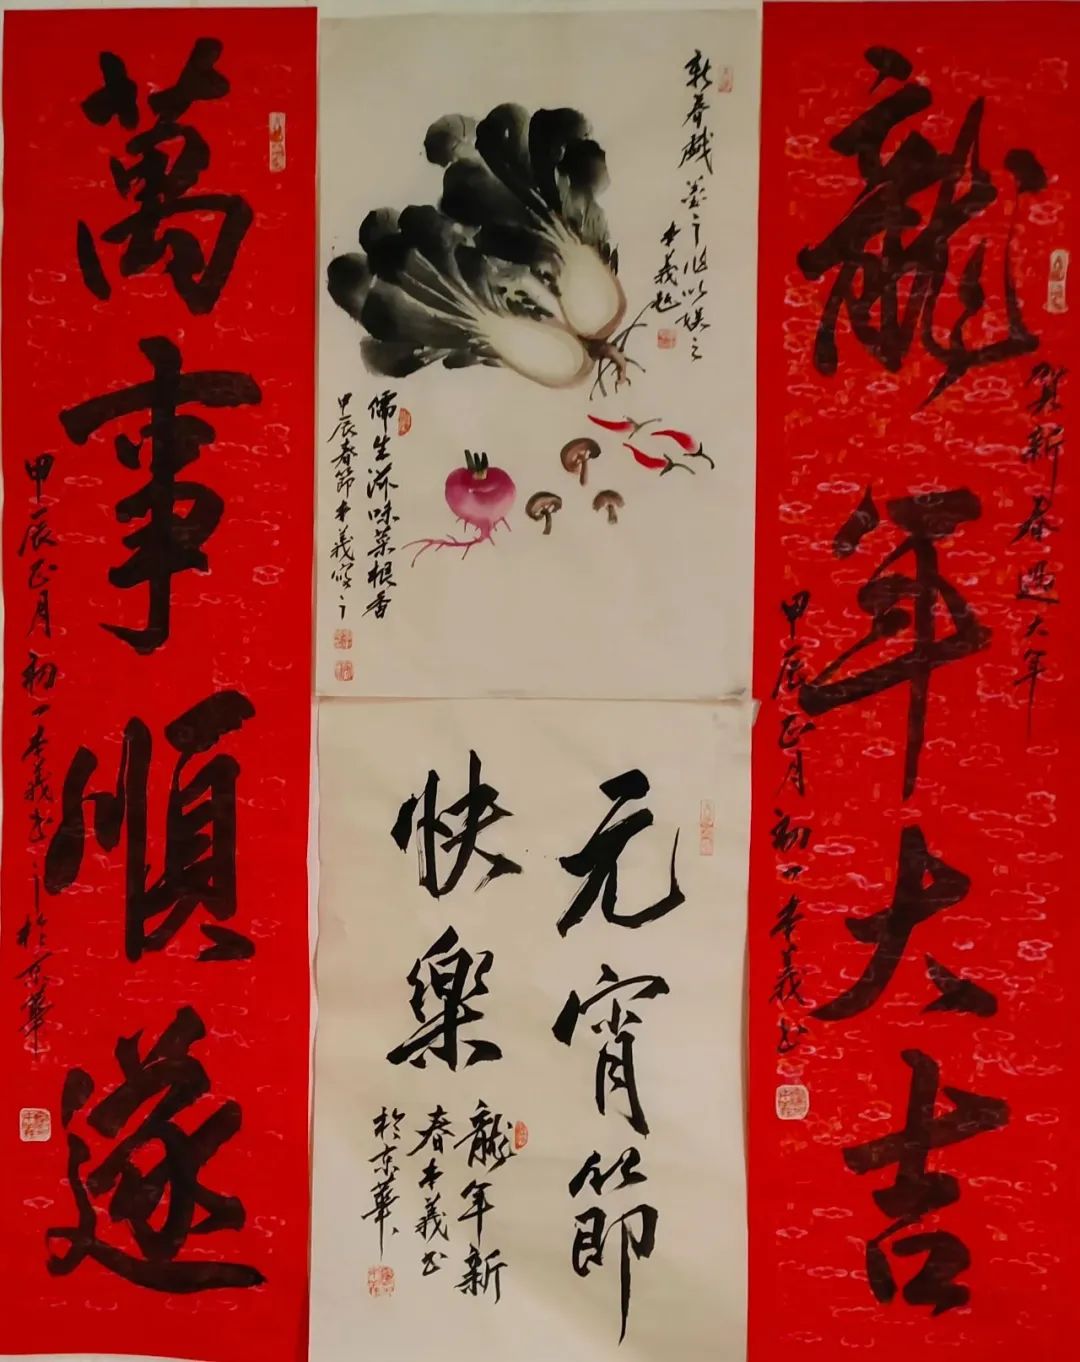 龍年大吉
賀新春過大年
甲辰正月初一本義书
萬事順遂
甲辰正月初一本義书于於京華
新春戲墨之
以娱之
本義題
儒生滋味菜根香
甲辰春節本義寫之
元宵節
快樂
龍年新
春本義书
於京華